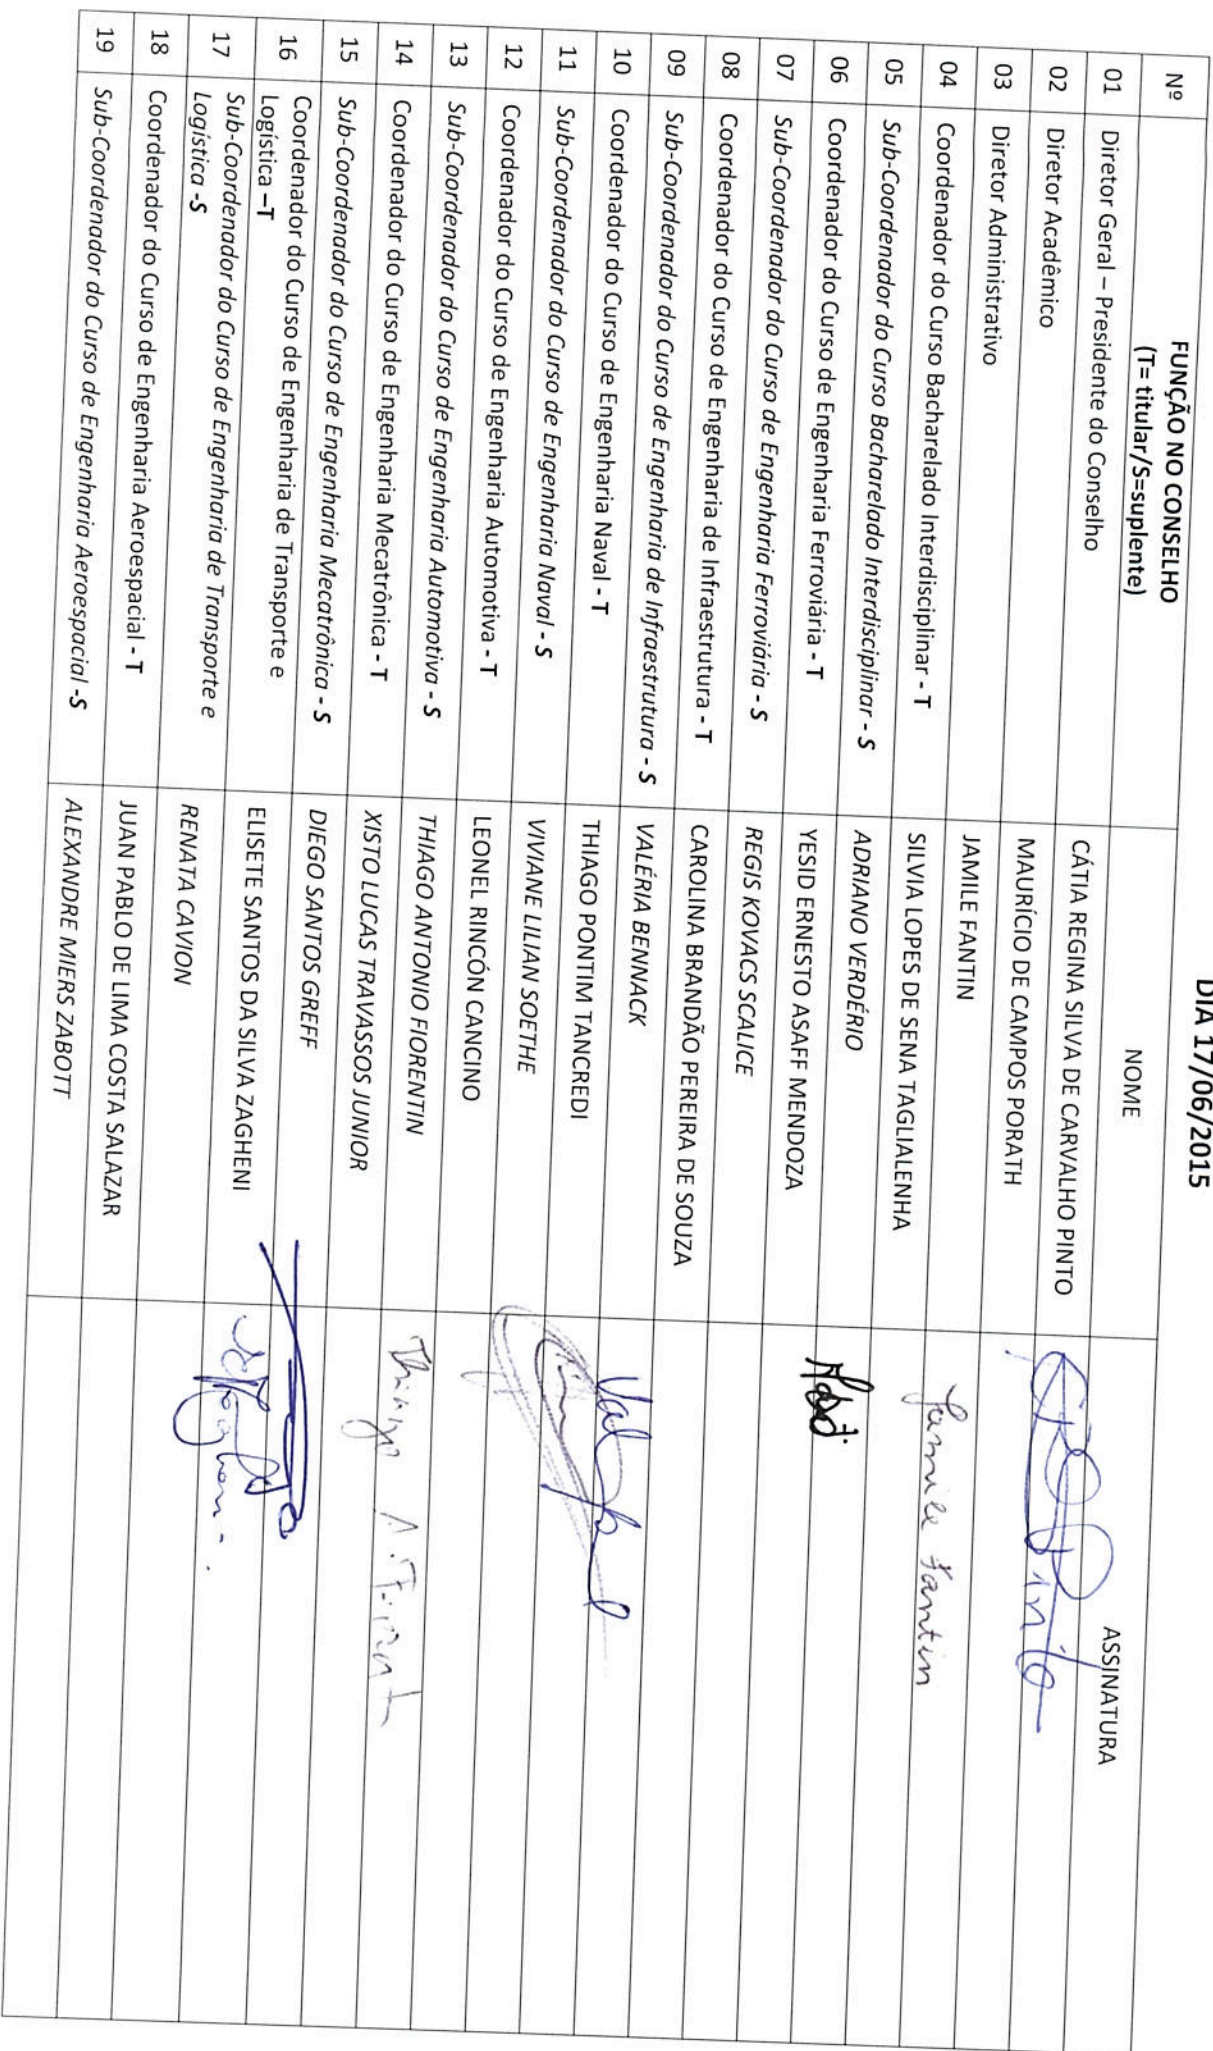 DIA 17/06/2015
Nº FUNÇÃO NO CONSELHO NOME ASSINATURA
(T= titular/S=suplente)
01 Diretor Geral – Presidente do Conselho CÁTIA REGINA SILVA DE CARVALHO PINTO
02 Diretor Acadêmico MAURÍCIO DE CAMPOS PORATH
03 Diretor Administrativo JAMILE FANTIN Jamile Fantin
04 Coordenador do Curso Bacharelado Interdisciplinar - T SILVIA LOPES DE SENA TAGLIALENHA
05 Sub-Coordenador do Curso Bacharelado Interdisciplinar - S ADRIANO VERDÉRIO
06 Coordenador do Curso de Engenharia Ferroviária - T YESID ERNESTO ASAFF MENDOZA
07 Sub-Coordenador do Curso de Engenharia Ferroviária - S REGIS KOVACS SCALICE
08 Coordenador do Curso de Engenharia de Infraestrutura - T CAROLINA BRANDÃO PEREIRA DE SOUZA
09 Sub-Coordenador do Curso de Engenharia de Infraestrutura - S VALÉRIA BENNACK
10 Coordenador do Curso de Engenharia Naval - T THIAGO PONTIM TANCREDI
11 Sub-Coordenador do Curso de Engenharia Naval - S VIVIANE LILIAN SOETHE
12 Coordenador do Curso de Engenharia Automotiva - T LEONEL RINCÓN CANCINO
13 Sub-Coordenador do Curso de Engenharia Automotiva - S THIAGO ANTONIO FIORENTIN Thiago A.
14 Coordenador do Curso de Engenharia Mecatrônica - T XISTO LUCAS TRAVASSOS JUNIOR
15 Sub-Coordenador do Curso de Engenharia Mecatrônica - S DIEGO SANTOS GREFF
16 Coordenador do Curso de Engenharia de Transporte e ELISETE SANTOS DA SILVA ZAGHENI
Logística –T
17 Sub-Coordenador do Curso de Engenharia de Transporte e RENATA CAVION
Logística -S
18 Coordenador do Curso de Engenharia Aeroespacial - T JUAN PABLO DE LIMA COSTA SALAZAR
19 Sub-Coordenador do Curso de Engenharia Aeroespacial -S ALEXANDRE MIERS ZABOTT